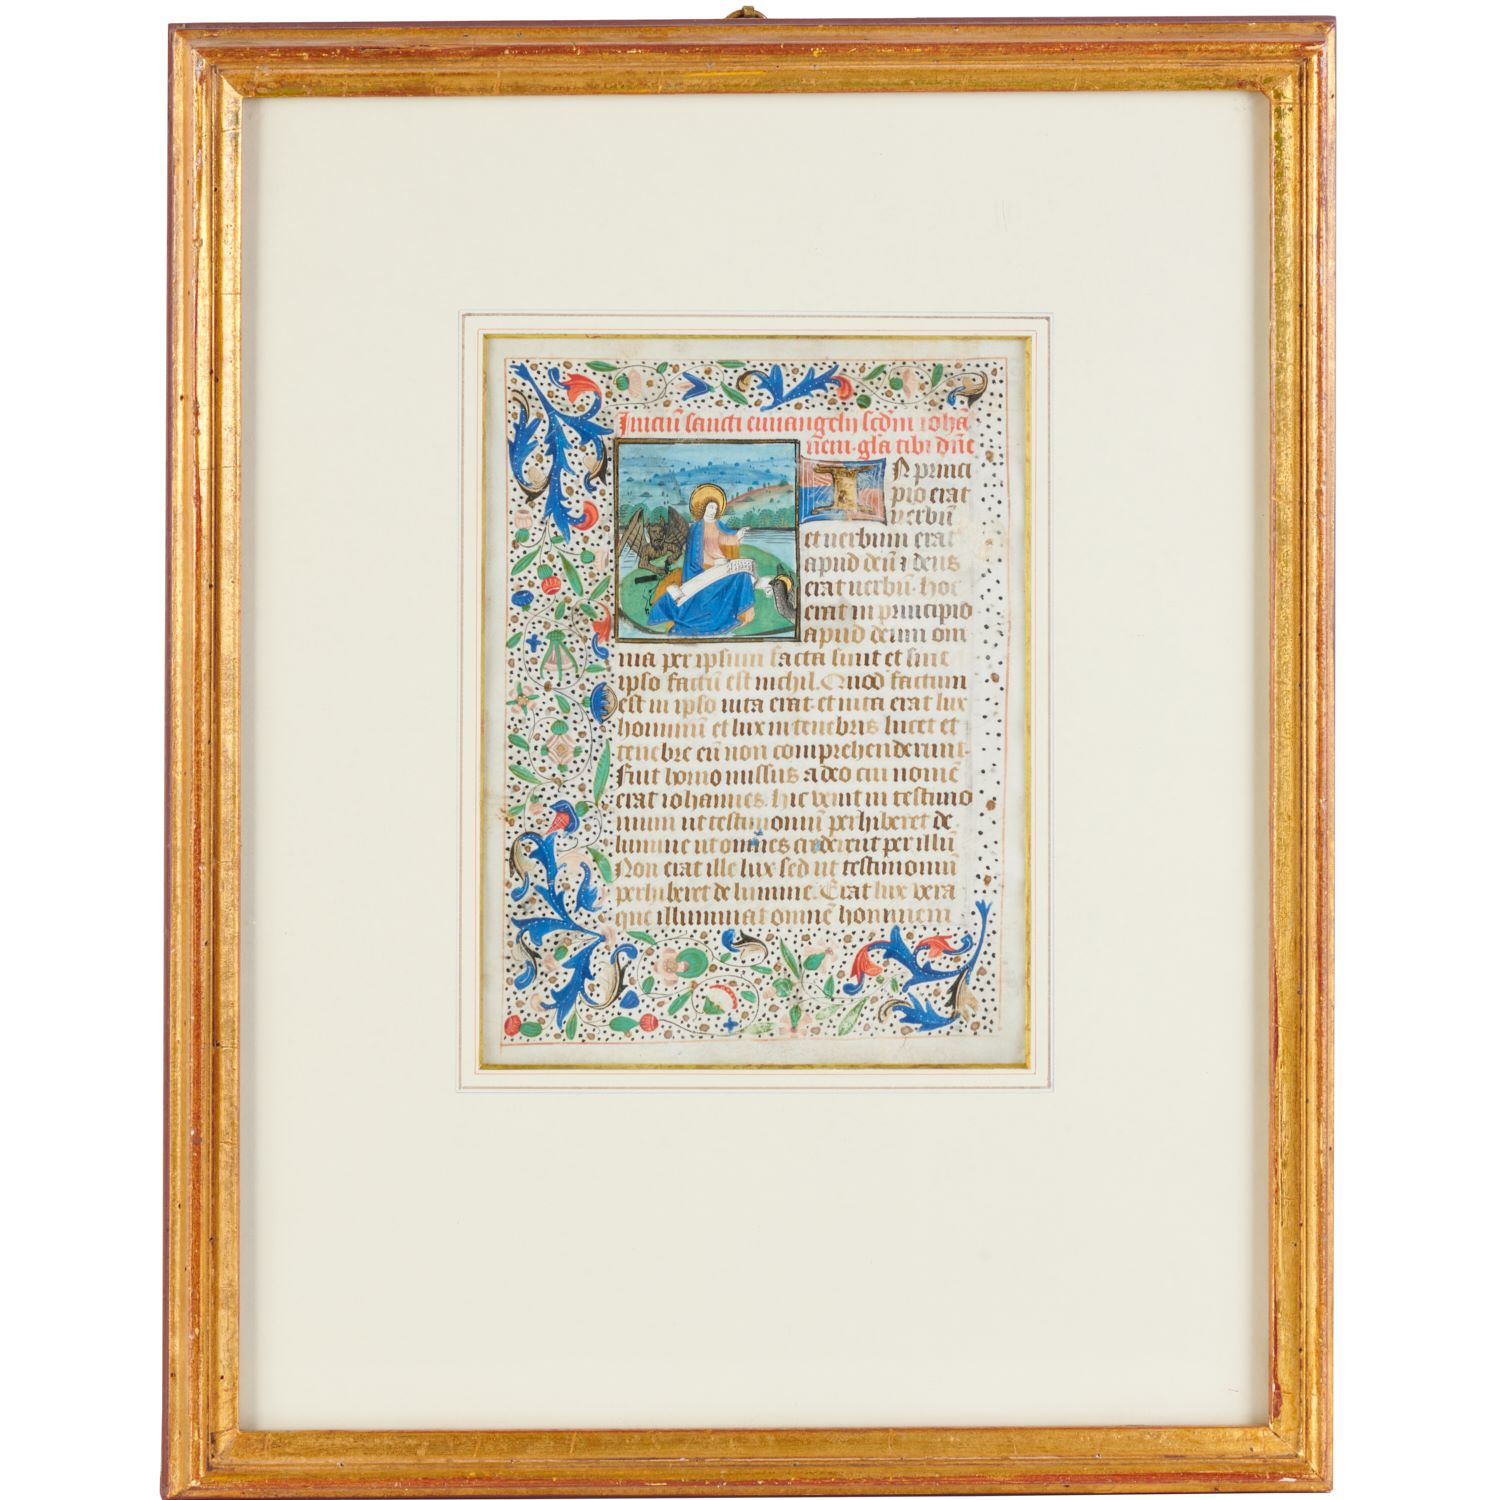 Iniciū sancti euuangelij scdm iohā
nem. gl'a tibi dn̄e
IN princi
pio erat
verbū
et verbum erat
apud deū ⁊ deus
erat verbū. hoc
erat in principio
apud deum om
nia per ipsum facta sunt et sine
ipso factū est nichil. Quod factum
est in ipso uita erat. et uita erat lux
hominū et lux in tenebris lucet et
tenebre eū non comprehenderunt.
Fuit homo missus a deo cui nomē
erat iohannes. hic venit in testimo
nium ut testimoniū perhiberet de
lumine ut omnes crederent per illū
Non erat ille lux sed ut testimoniū
perhiberet de lumine. Erat lux vera
que illuminat omnē hominem